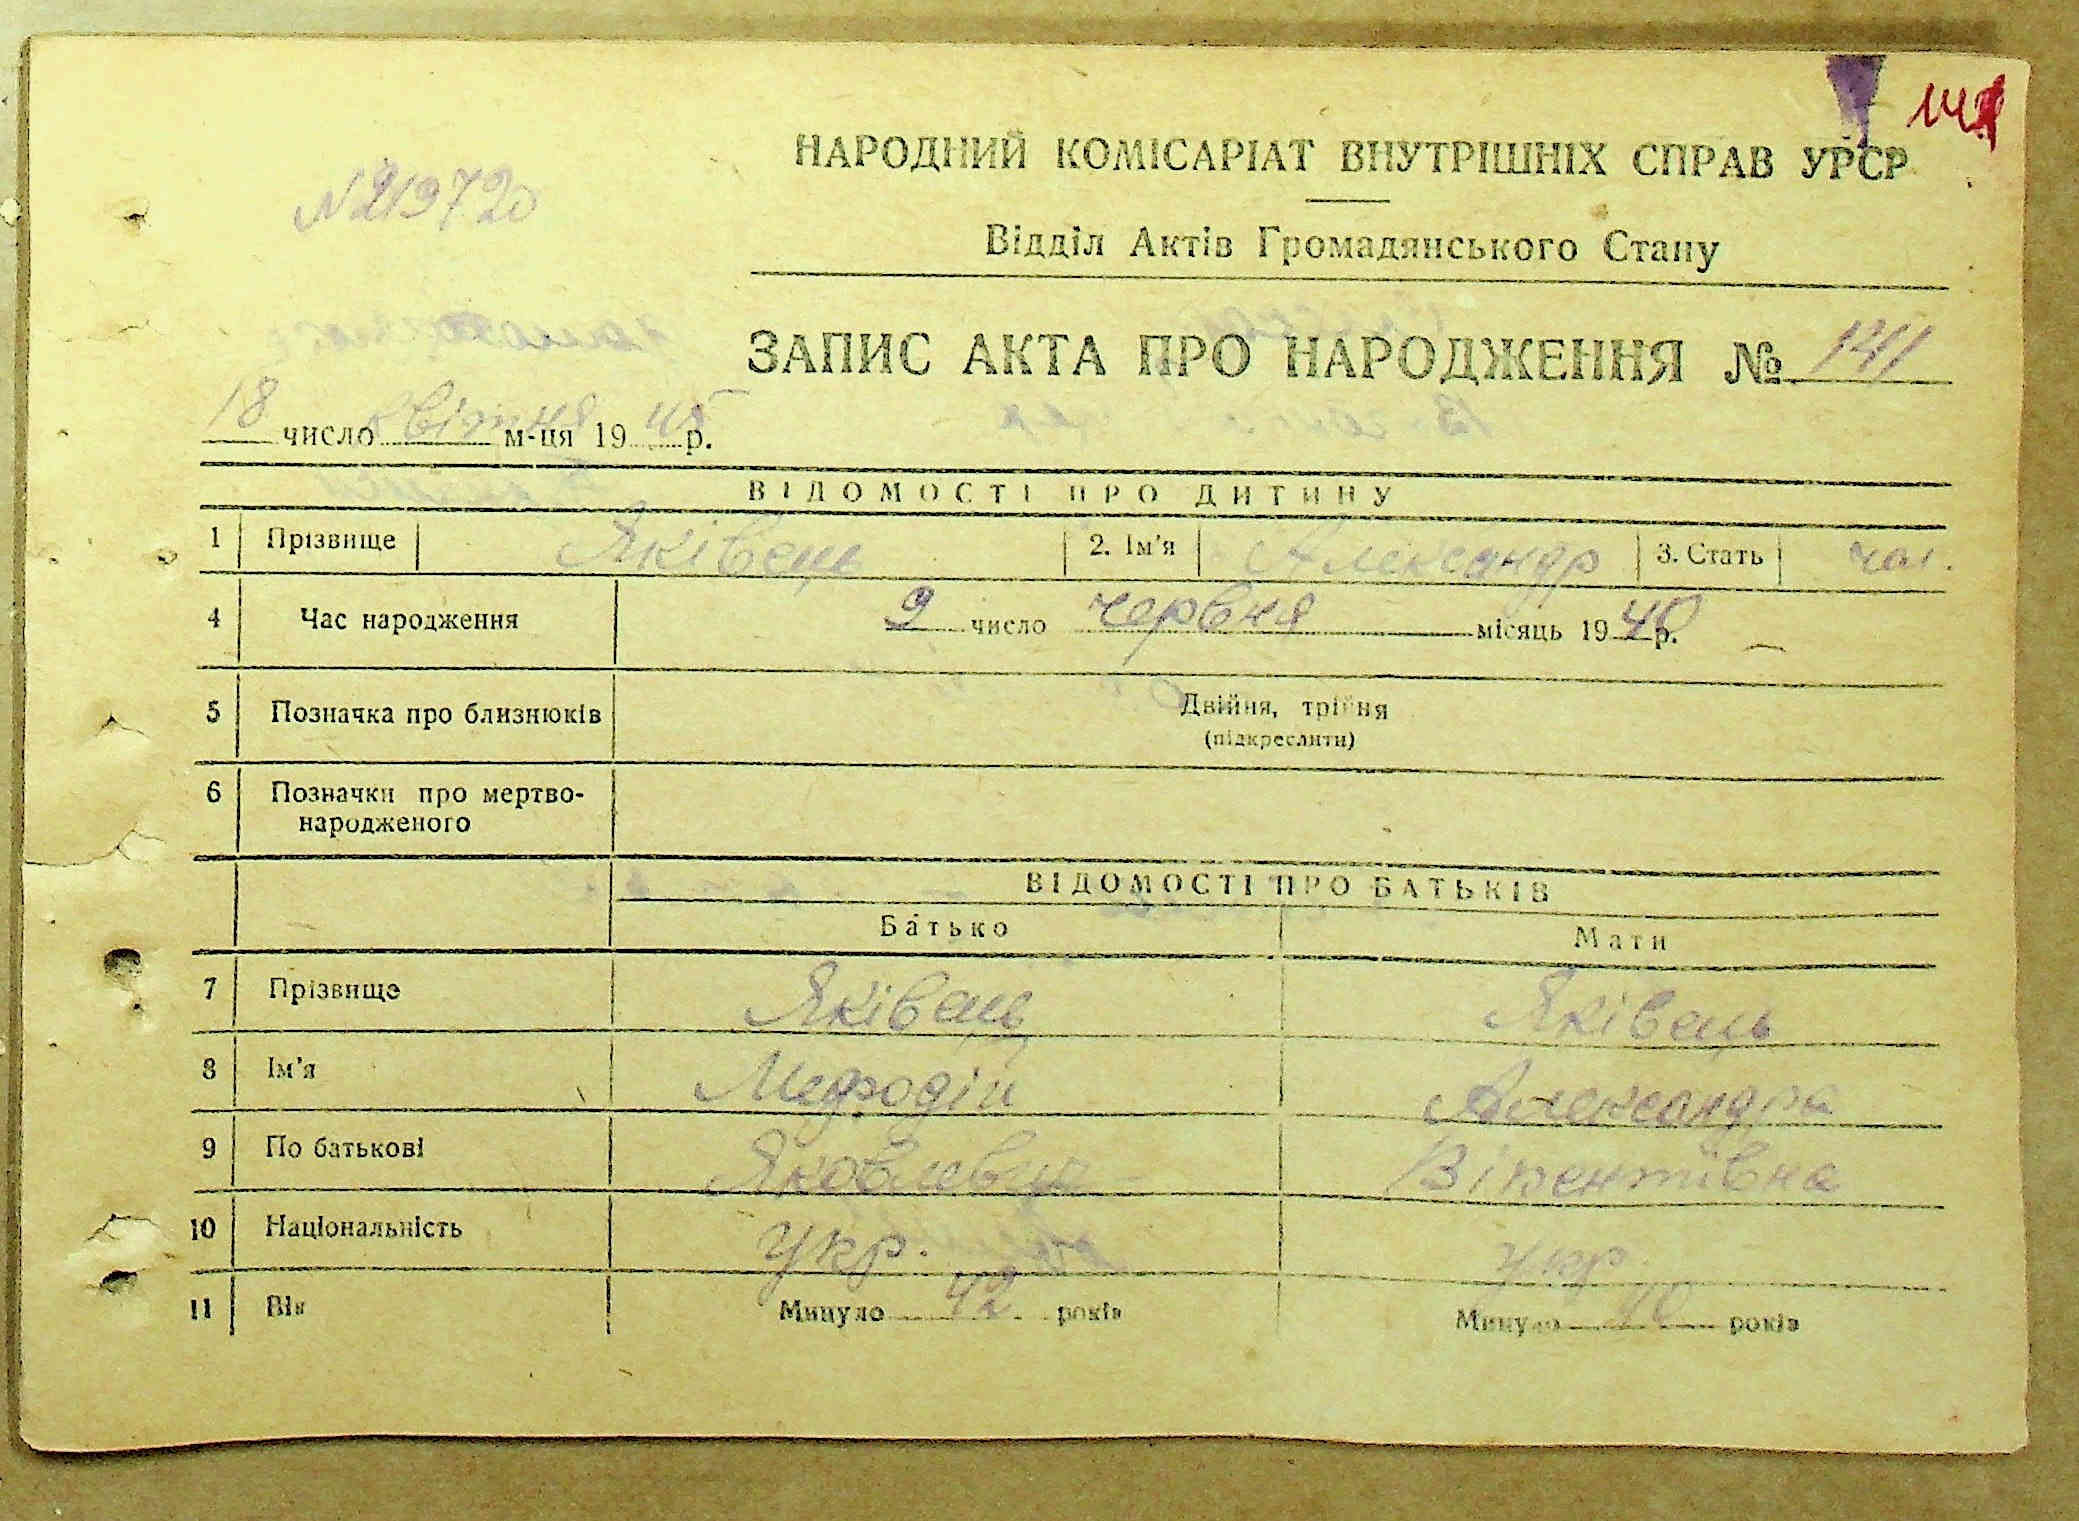 НАРОДНИЙ КОМІСАРІАТ ВНУТРІШНІХ СПРАВ УРСР
№ 219720
Відділ Актів Громадянського Стану
ЗАПИС АКТА ПРО НАРОДЖЕННЯ № 141
18 число квітня м-ця 1945 р.
ВІДОМОСТІ ПРО ДИТИНУ
1 Прізвище Яківець 2. Ім'я Александр 3. Стать чол.
4 Час народження 9 число червня місяць 1940 р.
5 Позначка про близнюків Двійня, трійня
(підкреслити)
6 Позначки про мертво-
народженого
ВІДОМОСТІ ПРО БАТЬКІВ
Батько Мати
7 Прізвище Яківець Яківець
8 Ім'я Мефодій Александра
9 По батькові Яковлевич Вікентіївна
10 Національність Укр. Укр.
11 Вік Минуло 42 років Минуло 40 років